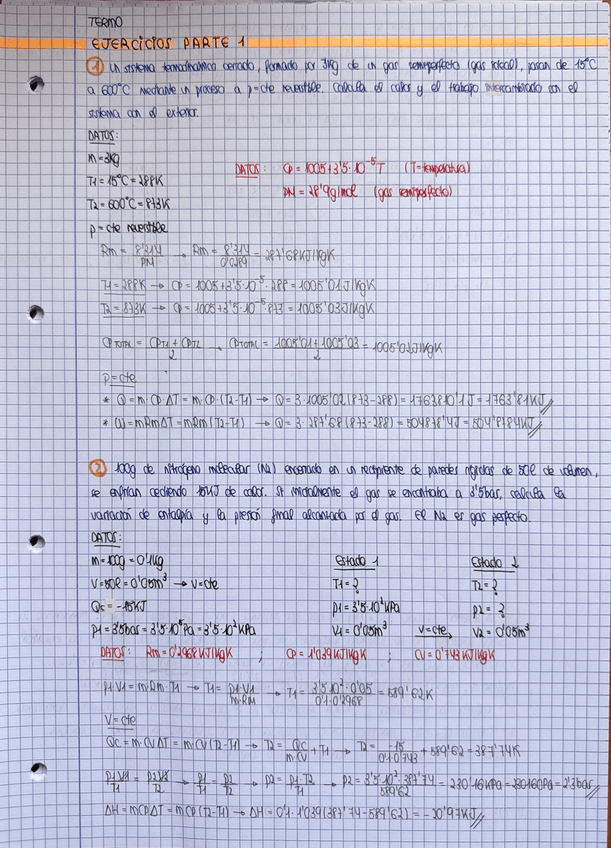 TERMO
EJERCICIOS PARTE 1
1 Un sistema termodinámico cerrado, formado por 3Kg de un gas semiperfecto (gas ideal), pasan de 15°C
a 600°C mediante un proceso a p=cte reversible. Calcula el calor y el trabajo intercambiado con el
sistema con el exterior.
DATOS:
m=3Kg
T1=15°C=288K
T2=600°C=873K
p=cte reversible
DATOS: Cp=1005+3'5·10^-5 T (T=temperatura)
PM=28'9g/mol (gas semiperfecto)
Rm = 8'314/PM → Rm = 8'314/0'0289 = 287'68KJ/KgK
T1=288K → Cp=1005+3'5·10^-5·288=1005'01J/KgK
T2=873K → Cp=1005+3'5·10^-5·873=1005'03J/KgK
Cp TOTAL = (CpT1+CpT2)/2 , Cp TOTAL = (1005'01+1005'03)/2 = 1005'02J/KgK
p=cte
* Q=m·Cp·ΔT=m·Cp·(T2-T1) → Q=3·1005'02(873-288)=1763810'1J=1763'81KJ
* W=mRmΔT=mRm(T2-T1) → Q=3·287'68(873-288)=504878'4J=504'8784KJ
2 100g de nitrógeno molecular (N2) encerrado en un recipiente de paredes rígidas de 50l de volumen,
se enfrían cediendo 15KJ de calor. Si inicialmente el gas se encontraba a 3'5bar, calcula la
variación de entalpía y la presión final alcanzada por el gas. El N2 es gas perfecto.
DATOS:
m=100g=0'1Kg
V=50l=0'05m³ → V=cte
Qc=-15KJ
p1=3'5bar=3'5·10^5Pa=3'5·10²KPa
Estado 1
T1=?
p1=3'5·10²KPa
V1=0'05m³
V=cte →
Estado 2
T2=?
p2=?
V2=0'05m³
DATOS: Rm=0'2968KJ/KgK ; Cp=1'039KJ/KgK ; CV=0'743KJ/KgK
p1·V1=m·Rm·T1 → T1=p1·V1/m·RM → T1=3'5·10²·0'05/0'1·0'2968=589'62K
V=cte
QC=m·CVΔT=m·CV(T2-T1) → T2=QC/m·CV+T1 → T2=-15/0'1·0'743+589'62=387'74K
p1V1/T1=p2V2/T2 → p1/T1=p2/T2 → p2=p1·T2/T1 → p2=3'5·10²·387'74/589'62=230'16KPa=230160Pa=2'3bar
ΔH=mCpΔT=mCp(T2-T1) → ΔH=0'1·1'039(387'74-589'62)=-20'97KJ